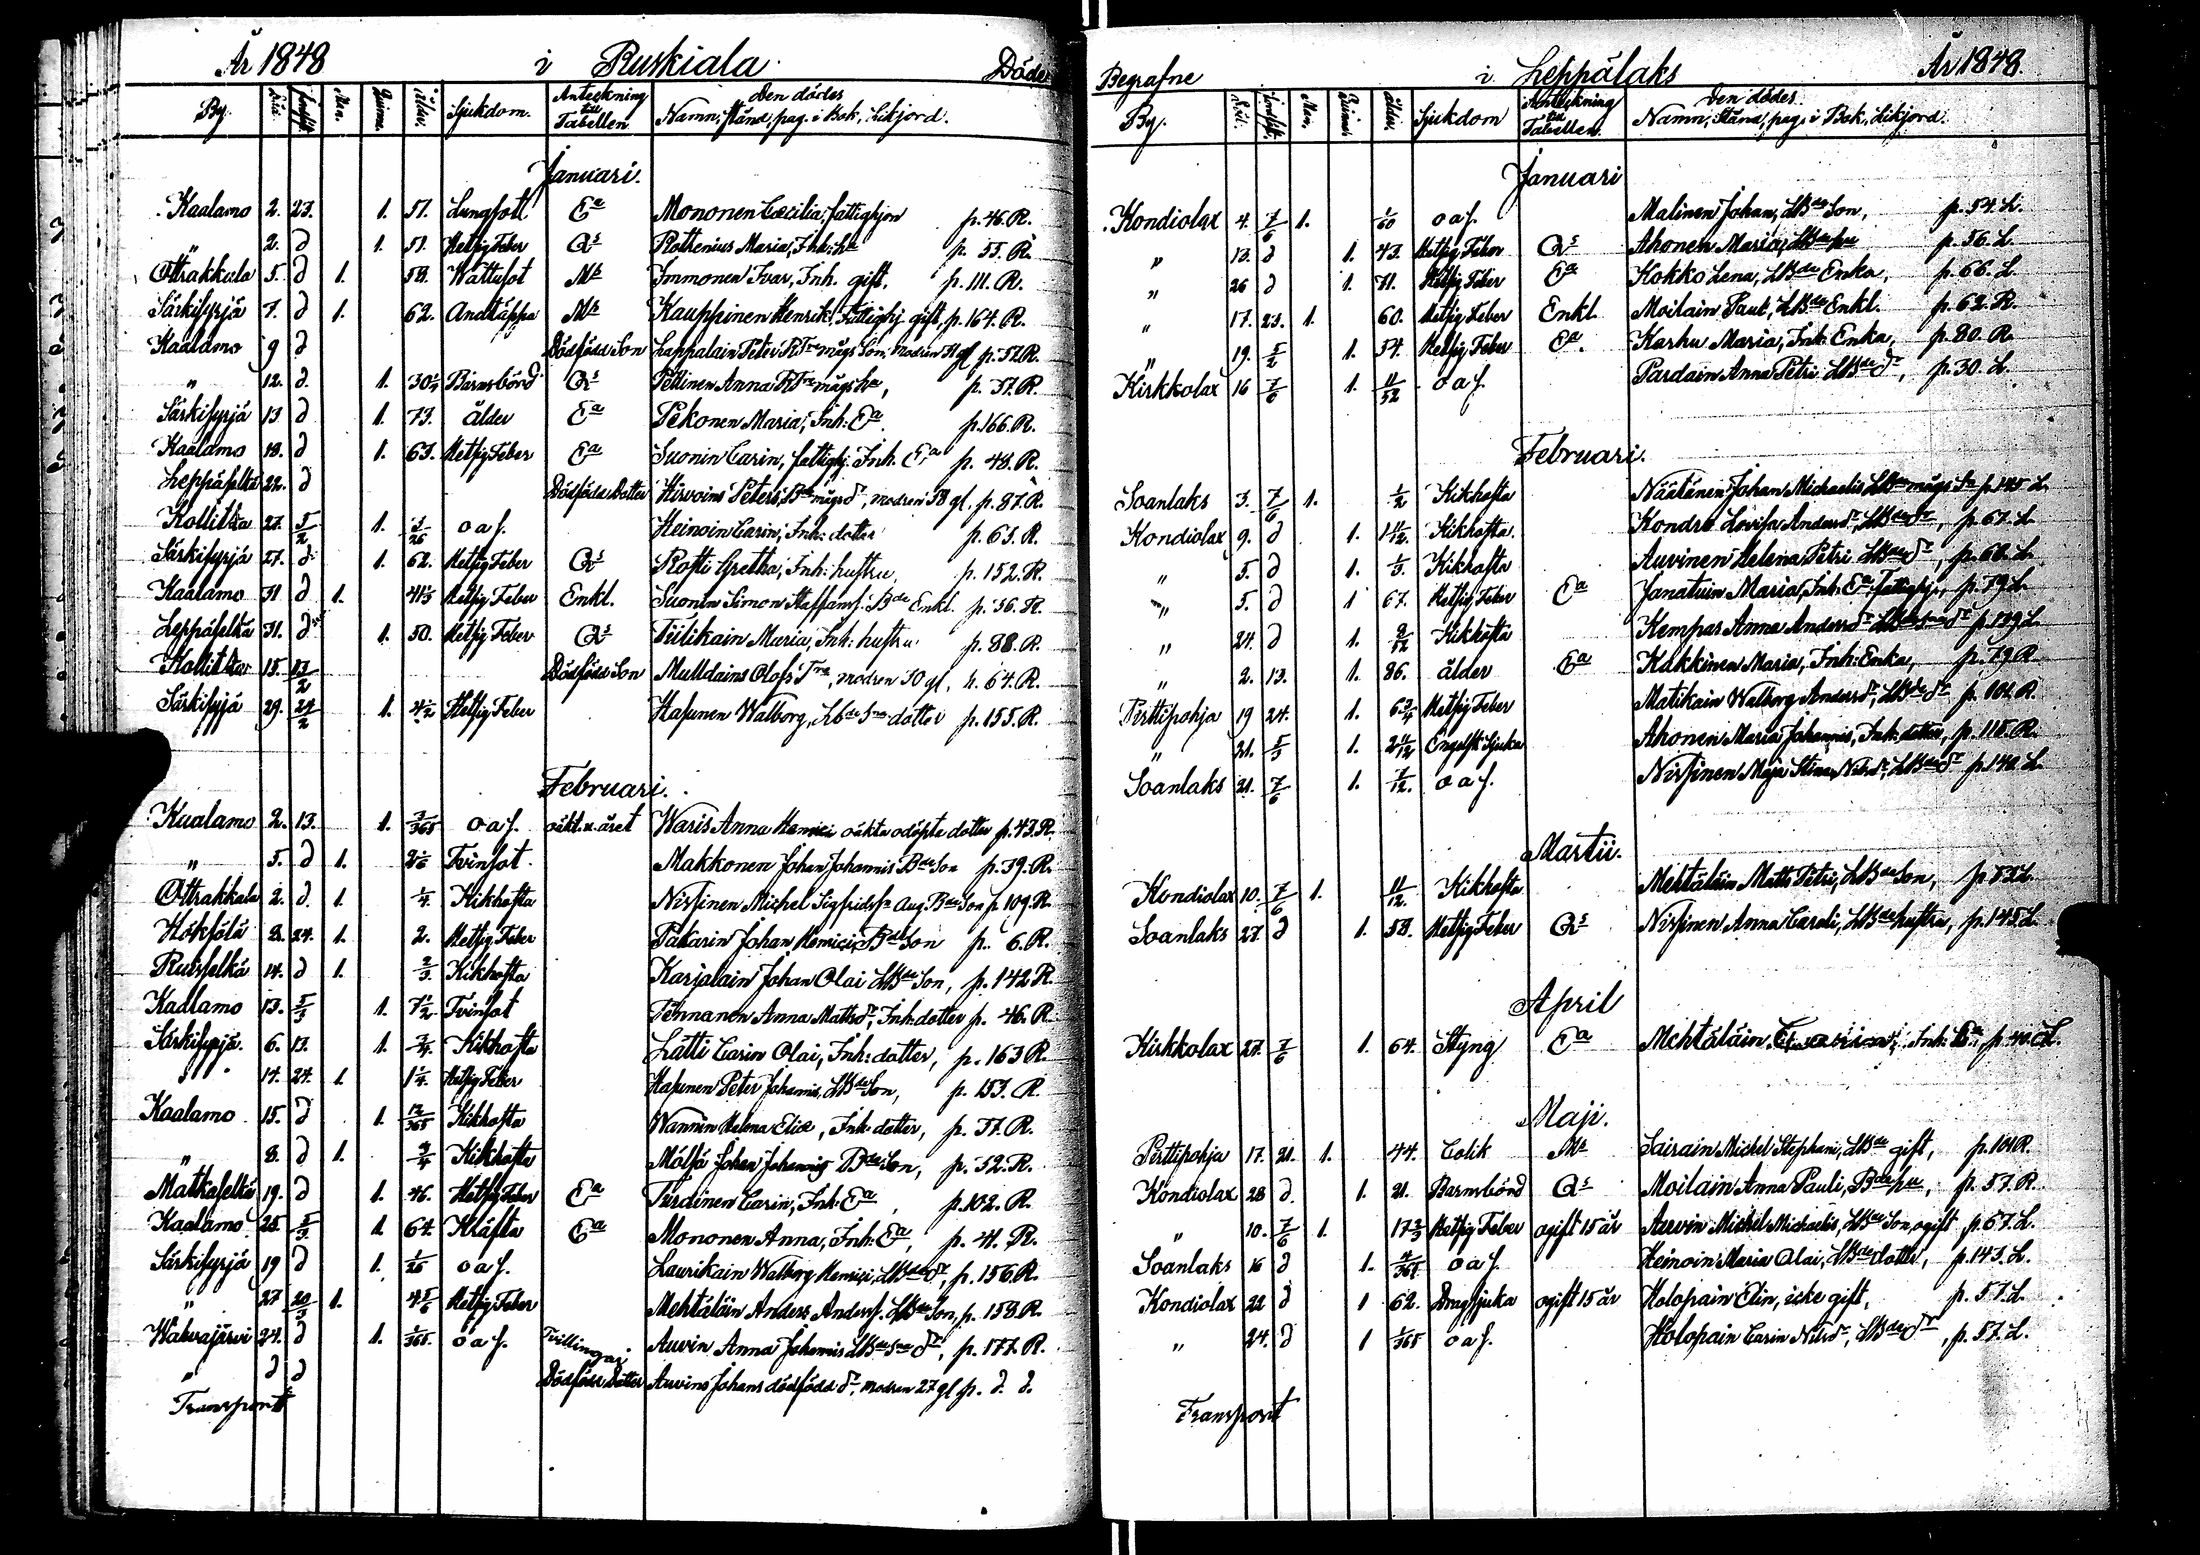 År 1848 i Ruskiala Döde
By. Död. Jordfäst. Mn. Qvinn. Ålder. Sjukdom. Anteckning till Tabellen. Den dödes Namn, stånd, pag. i Bok, Likjord.
Januari.
Kaalamo 2. 23. 1. 51. Lungsot Ea Mononen Cæcilia, fattighjon p. 46. R.
" 2. d 1. 51. Hetsig Feber Qs Rothenius Maria, Inh. hu p. 55. R.
Ottrakkala 5. d 1. 58. Wattusot Ms Immonen Ivar, Inh. gift. p. 111. R.
Särkisyrjä 7. d 1. 62. Andtäppa Ms Kauppinen Henrik, Fattighj. gift, p. 164. R.
Kaalamo 9 d Dödfödd Son Lappalain Peter mågs Son, modren 31 gl p. 52 R.
" 12. d. 1. 30 1/2 Barnsbörd Qs Pellinen Anna mågs hu, p. 57. R.
Särkisyrjä 13. d 1. 73. ålder Ea Pekonen Maria, Inh: Ea. p. 166. R.
Kaalamo 19. d 1. 63. Hetsig Feber Ea Suonin Carin, fattighj. Inh. Ea p. 48. R.
Leppäselkä 22. d Dödfödd Dotter Hirvoins Peters, Bde mågs dr, modren 38 gl, p. 87. R.
Kollitka 27. 5/2 1. 1/26 o a s. Heinoin Carin, Inh: dotter p. 63. R.
Särkisyrjä 27. d. 1. 62. Hetsig Feber Qs Rosti Gretha, Inh: hustru, p. 152. R.
Kaalamo 31 d 1. 41 1/3 Hetsig Feber Enkl. Suonin Simon Staffans. Bde Enkl. p. 56. R.
Leppäselkä 31. d 1. 50. Hetsig Feber Qs Tiilikain Maria, Inh: hustru p. 88. R.
Kollitka 15. 13/2 Dödfödd Son Multdains Olofs Tre, modren 30 gl, p. 64. R.
Särkisyrjä 29. 24/2 1. 4 1/2 Hetsig Feber Hasunen Walborg, Lbde Sns dotter p. 155. R.
Februari.
Kaalamo 2. 13. 1. 3/365 o a s. oäkt. u. året Waris Anna Henrici oäkta odöpta dotter p. 43. R.
" 5. d 1. 2 1/6 Tvinsot. Makkonen Johan Johannis Bde Son p. 39. R.
Ottrakkala 2. d. 1. 1/4 Kikhosta Nissinen Michel Sigfrids sn Aug Bde Son p. 109. R.
Hökfölä 8. 24. 1. 2. Hetsig Feber Pakarin Johan Henrici, Bde Son p. 6. R.
Ruisselkä 14. d 1. 2/3. Kikhosta Karjalain Johan Olai LBde Son, p. 142 R.
Kaalamo 13. 5/3 1. 7 1/2 Tvinsot Tennanen Anna Matts dr, Inh: dotter p. 46. R.
Särkisyrjä. 6. 13. 1. 3/4. Kikhosta Lätti Carin Olai, Inh: dotter, p. 163 R.
" 14. 24. 1. 1 1/4. Hetsig Feber Hasunen Peter Johannis, LBde Son, p. 153. R.
Kaalamo 15. d 1. 12/365 Kikhosta Wannin Helena Eliæ, Inh. dotter, p. 57. R.
" 8. d 1. 3/4 Kikhosta Mölsä Johan Johannis Bde Son, p. 52. R.
Matkaselkä 19. d 1. 46. Hetsig Feber Ea Turdinen Carin, Inh: Ea, p. 102. R.
Kaalamo 25 5/3. 1. 64. Kräfta Ea Mononen Anna, Inh: Ea, p. 41. R.
Särkisyrjä 19 d 1. 1/26 o a s. Laurikain Walborg Henrici, LBde dr, p. 156. R.
" 27 20/3 1. 4 5/6 Hetsig Feber Mehtäläin Anders Anderss. LBde Son, p. 158. R.
Wahvajärvi 24. d 1. 1/365. o a s. Tvillingar Auvin Anna Johannis LBde Sns dr, p. 177. R.
" d d Dödfödd Dotter Auvins Johans dödfödd dr, modren 27 gl p. d. d.
Transport
Begrafne i Leppälaks År 1848.
By. Död. Jordfäst. Mn. Qvinn. ålder. Sjukdom Anteckning till Tabellen. Den dödes. Namn, Stånd, pag. i Bok, Likjord.
Januari
Kondiolax 4. 7/6 1. 1/60 o a s. Malinen Johan, LBde Son, p. 54. L.
" 13. d 1. 43. Hetsig Feber Qs Ahonen Maria, LBde hu p. 56. L.
" 26 d 1. 71. Hetsig Feber Ea Kokko Lena, LBde Enka, p. 66. L.
" 17. 23. 1. 60. Hetsig Feber Enkl. Moilain Paul, LBde Enkl. p. 62. R.
" 19. 5/2 1. 54. Hetsig Feber Ea. Karhu Maria, Inh: Enka, p. 80. R.
Kirkkolax 16 7/6 1. 11/52 o a s. Pardain Anna Petri LBde dr, p. 30. L.
Februari.
Soanlaks 3. 7/6 1. 1/2 Kikhosta Näätänen Johan Michaelis LBde mågs Sn p. 145 L.
Kondiolax 9. d 1. 1 11/12. Kikhosta. Kondro Lovisa Anders dr, LBde dr, p. 67. L.
" 5. d 1. 1/3. Kikhosta Auvinen Helena Petri LBde dr, p. 68. L.
" 5. d 1 67. Hetsig Feber Ea Janatuin Maria, Inh: Ea, fattighj, p. 79 L.
" 24. d 1. 9/52 Kikhosta Kempas Anna Anders dr LBde Sns dr p. 139 L.
" 2. 13. 1. 86. ålder Ea Kakkinen Maria, Inh: Enka, p. 79 R.
Perttipohja 19 24. 1. 6 3/4 Hetsig Feber Matikain Walborg Anders dr, LBde dr p. 101. R.
" 21. 5/3 1. 2 11/12 Engelsk Sjuka Ahonen Maria Johannis, Inh: dotter, p. 115. R.
Soanlaks 21. 7/6 1. 7/12. o a s. Nissinen Maja Stina Nils dr, LBde dr p. 140. L.
Martii.
Kondiolax 10. 7/6 1. 11/12. Kikhosta Mehtäläin Matts Petri, LBde Son, p. 53 L.
Soanlaks 27. d 1. 58. Hetsig Feber Qs Nissinen Anna Caroli, LBde hustru, p. 145. L.
April
Kirkkolax 27. 7/6 1. 64. Styng Ea Mehtäläin Inh: Ea, L.
Maji.
Perttipohja 17. 21. 1. 44. Colik Ms Sairain Michel Stephani, LBde gift, p. 101 R.
Kondiolax 28 d. 1. 21. Barnsbörd Qs Moilain Anna Pauli, Bde hu, p. 57. R.
" 10. 7/6 1. 17 2/3 Hetsig Feber ogift 15 år Auvin Michel Michaelis, LBde Son, ogift p. 67. L.
Soanlaks 16 d 1. 4/365 o a s. Heinoin Maria Olai, LBde dotter, p. 143. L.
Kondiolax 22 d 1 62. Dragsjuka ogift 15 år Holopain Elin, icke gift, p. 57. L.
" 24. d 1 1/365 o a s. Holopain Carin Nils dr, LBde dr, p. 57. L.
Transport